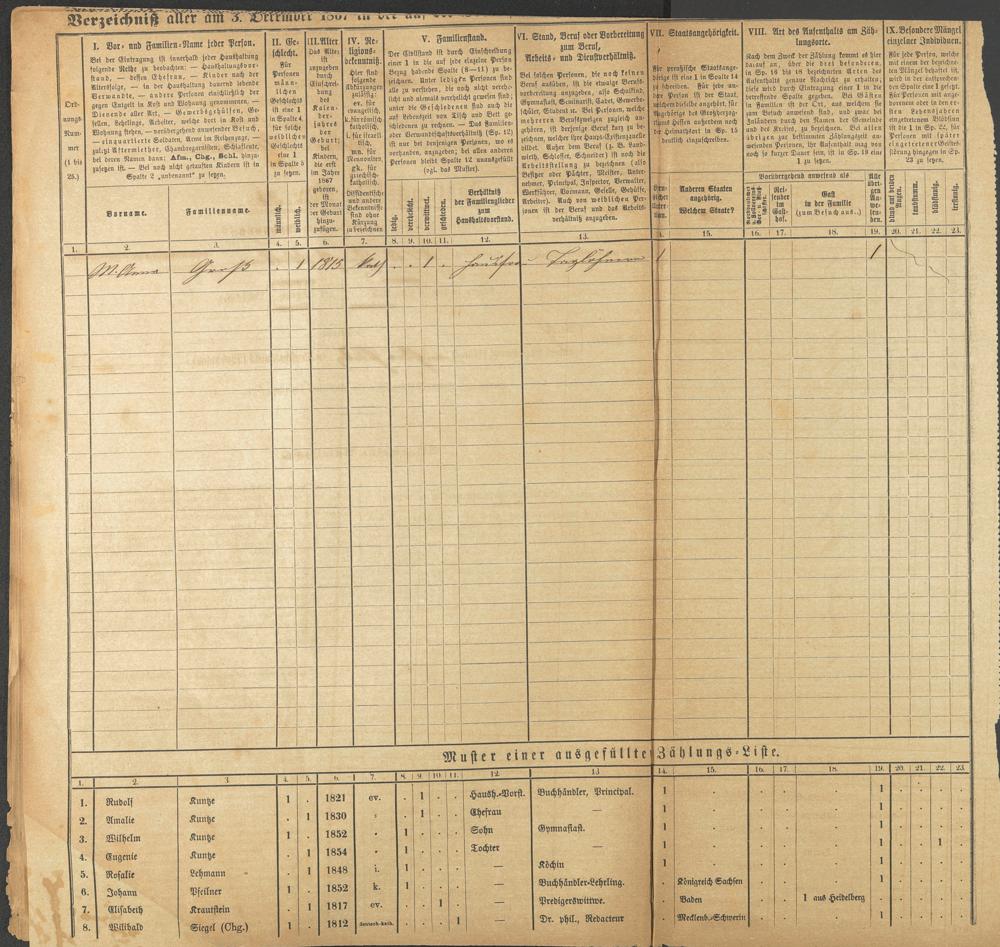 Verzeichniß aller am 3. December 1867 in der auf der
Ord-
nungs-
Num-
mer
(1 bis
25.)
I. Vor- und Familien-Name jeder Person.
Bei der Eintragung ist innerhalb jeder Haushaltung
folgende Reihe zu beobachten: — Haushaltungsvor-
stand, — dessen Ehefrau, — Kinder nach der
Altersfolge, — in der Haushaltung dauernd lebende
Verwandte, — andere Personen einschließlich der
gegen Entgelt in Kost und Wohnung genommenen, —
Dienende aller Art, — Gewerbsgehülfen, Ge-
sellen, Lehrlinge, Arbeiter, welche dort in Kost und
Wohnung stehen, — vorübergehend anwesender Besuch,
— einquartierte Soldaten, Arme im Reihenzuge, —
zuletzt Aftermiether, Chambregarnisten, Schlafleute,
bei deren Namen dann: Afm., Chg., Schl. hinzu-
zusetzen ist. — Bei noch nicht getauften Kindern ist in
Spalte 2 „unbenannt“ zu setzen.
Vorname. Familienname.
II. Ge-
schlecht.
Für
Personen
männ-
lichen
Geschlechts
ist eine 1
in Spalte 4,
für solche
weiblichen
Geschlechts
eine 1
in Spalte 5
zu setzen.
männlich.
weiblich.
III. Alter
Das Alter
ist
anzugeben
durch
Einschrei-
bung
des
Kalen-
der-
jahres
der
Geburt;
bei
Kindern,
die erst
im Jahre
1867
geboren,
ist
der Monat
der Geburt
hinzu-
zufügen.
IV. Re-
ligions-
bekenntniß.
Hier sind
folgende
Abkürzungen
zulässig:
ev. für
evangelisch,
k. für römisch
katholisch,
i. für israeli-
tisch,
mn. für
Mennoniten,
gk. für
griechisch-
katholisch.
Dissidentische
und andere
Bekenntnisse
sind ohne
Kürzung
zu bezeichnen
V. Familienstand.
Der Civilstand ist durch Einschreibung
einer 1 in die auf jede einzelne Person
Bezug habende Spalte (8—11) zu be-
zeichnen. Unter ledigen Personen sind
alle zu verstehen, die noch nicht verehe-
licht und niemals verehelicht gewesen sind;
unter die Geschiedenen sind auch die
auf Lebenszeit von Tisch und Bett ge-
schiedenen zu rechnen. — Das Familien-
oder Verwandtschaftsverhältniß (Sp. 12)
ist nur bei denjenigen Personen, wo es
vorhanden, anzugeben; bei allen anderen
Personen bleibt Spalte 12 unausgefüllt
(vgl. das Muster).
ledig.
verehelicht.
verwittwet.
geschieden.
Verhältniß
der Familienglieder
zum
Haushaltsvorstand.
VI. Stand, Beruf oder Vorbereitung
zum Beruf,
Arbeits- und Dienstverhältniß.
Bei solchen Personen, die noch keinen
Beruf ausüben, ist die etwaige Berufs-
vorbereitung anzugeben, also Schulkind,
Gymnasiast, Seminarist, Cadet, Gewerbe-
schüler, Student u. Bei Personen, welche
mehreren Berufszweigen zugleich an-
gehören, ist derjenige Beruf kurz zu be-
zeichnen, welcher ihre Haupt-Existenzquelle
bildet. Außer dem Beruf (z. B. Land-
wirth, Schlosser, Schneider) ist noch die
Arbeitsstellung zu bezeichnen (also
Besitzer oder Pächter, Meister, Unter-
nehmer, Principal, Inspector, Verwalter,
Werkführer, Vormann, Geselle, Gehülfe,
Arbeiter). Auch von weiblichen Per-
sonen ist der Beruf und das Arbeits-
verhältniß anzugeben.
VII. Staatsangehörigkeit.
Für preußische Staatsange-
hörige ist eine 1 in Spalte 14
zu schreiben. Für jede an-
dere Person ist der Staat,
welchem dieselbe angehört, für
Angehörige des Großherzog-
thums Hessen außerdem noch
der Heimathsort in Sp. 15
deutlich einzuschreiben.
Anderen Staaten
angehörig.
Welchem Staate?
VIII. Art des Aufenthalts am Zäh-
lungsorte.
Nach dem Zweck der Zählung kommt es hier
darauf an, über die drei besonderen,
in Sp. 16 bis 18 bezeichneten Arten des
Aufenthalts genaue Nachricht zu erhalten;
diese wird durch Eintragung einer 1 in die
betreffende Spalte gegeben. Bei Gästen
in Familien ist der Ort, aus welchem sie
zum Besuch anwesend sind, und zwar bei
Inländern durch den Namen der Gemeinde
und des Kreises, zu bezeichnen. Bei allen
übrigen zur bestimmten Zählungszeit an-
wesenden Personen, ihr Aufenthalt mag von
noch so kurzer Dauer sein, ist in Sp. 19 eine
1 zu setzen.
Vorübergehend anwesend als
Rei-
sender
im
Gast-
hof.
Gast
in der Familie
(zum Besuch aus..)
Alle
übri-
gen
An-
wesen-
den.
IX. Besondere Mängel
einzelner Individuen.
blind auf beiden
Augen.
taubstumm.
blödsinnig.
irrsinnig.
1. 2. 3. 4. 5. 6. 7. 8. 9. 10. 11. 12. 13. 15. 16. 17. 18. 19. 20. 21. 22. 23.
M. Anna Groß . 1 1815 kath . . 1 . Hausfrau Taglöhnerin 1 1
Muster einer ausgefüllten Zählungs-Liste.
1. 2. 3. 4. 5. 6. 7. 8. 9. 10. 11. 12. 13 14. 15. 16. 17. 18 19. 20. 21. 22. 23.
1. Rudolf Kuntze 1 . 1821 ev. . 1 . . Haush.-Vorst. Buchhändler, Principal. 1 . . . . 1 . . . .
2. Amalie Kuntze . 1 1830 " . 1 . . Ehefrau — 1 . . . . 1 . . . .
3. Wilhelm Kuntze 1 . 1852 " 1 . . . Sohn Gymnasiast. 1 . . . . 1 . . . .
4. Eugenie Kuntze . 1 1854 " 1 . . . Tochter — 1 . . . . 1 . . 1 .
5. Rosalie Lehmann . 1 1848 i. 1 . . . — Köchin 1 . . . . 1 . . . .
6. Johann Pfeilner 1 . 1852 k. 1 . . . — Buchhändler-Lehrling. . Königreich Sachsen . . . 1 . . . .
7. Elisabeth Krautstein . 1 1817 ev. . . 1 . — Predigerswittwe. . Baden . . 1 aus Heidelberg . . . . .
8. Willhald Siegel (Chg.) 1 . 1812 deutsch-kath. . . . 1 — Dr. phil., Redacteur . Mecklenb.-Schwerin . . . 1 . . . .